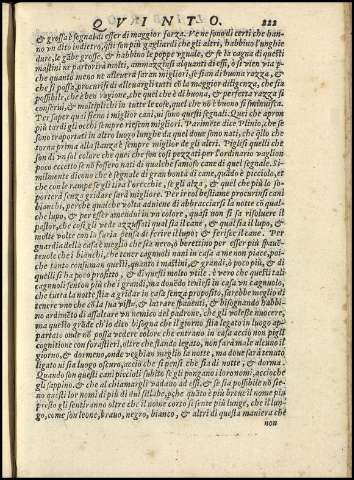 QVINTO. 222
& grossa è segnal di esser di maggior forza. Ve ne sono di certi che han-
no vn dito indietro, q̃sti son più gagliardi che gli altri, habbino l'unghie
dure, le gãbe grosse, & habbino le poppe vguale, & se la cagna di questi
mastini ne partorirà molti, ammazzisi alquanti di essi, ò si tien via p-
che quanto meno ne alleuerà faran migliori, se sian di buona razza, &
che si possa, procurisi di alleuargli tutti cõ la maggior diligenza, che sia
possibile, che è ben ragione, che quel che è di buona, & perfetta razza si
conserui, & multiplichi in tutte le cose, quel che nõ è buono si sminuisca.
Per saper quai sieno i migliori cani, ui sono questi segnali. Quei che apron
più tardi gli occhi sempre riescon migliori. Parimẽte dice Plinio, che se
sono traportati in altro luogo lunghe da quel doue sono nati, che q̃llo che
torna prima alla stanza è sempre migliore de gli altri. Piglisi quelli che
son di vn sol colore che quei che son così pezzati per l'ordinario vaglion
poco eccetto se nõ fossero nati di qualche famoso cane di quel segnale. Si-
milmente dicono che è segnale di gran bontà di cane, quãdo è picciolo, et
che con le rampe se gli tira l'orecchie, se gli alza, & quel che più lo so-
porterà senza gridare sarà migliore. Per in tal bestiame procurinsi cani
bianchi, perche qualche volta aduiene di abbracciarsi la notte cõ qual-
che lupo, & per esser amendui in vn colore, quasi non si sa risoluere il
pastor, che così gli vede azzuffati qual sia il cane, & qual sia il lupo, &
molte volte con la furia crededo di ferire il lupo & ferisce il cane. Per
guardia della casa è meglio che sia nero, ò berettino per esser più spauẽ-
teuole che i bianchi, che tener cagnuoli nani in casa a me non piace, poi-
che tanto consuman questi, quanto i mastini, & grandi, ò poco più, & di
quelli si ha poco profitto, & di questi molto vtile. è vero che questi tali
cagnuoli senton più che i grandi, ma douẽdo tenersi in casa vn cagnuolo,
che tutta la notte stia a gridar in casa senza proposito, sarebbe meglio di
tenere uno che cõ la sua vista, & latrare spauenti, & bisognando habbi-
no ardimẽto di assaltare vn nemico del padrone, che gli volesse nuocere,
ma questo grãde ch'io dico bisogna che il giorno stia legato in luogo ap-
partato onde nõ possa vedere coloro che entrano in casa acciò non pigli
cognitione con forastieri, oltre che stando legato, non farà male alcuno il
giorno, & dormeno, onde veghian meglio la notte, ma doue sarà tenuto
legato ui sia luogo oscuro, acciò che si pensi che sia di notte, & dorma.
Quando son questi cani piccioli subito se gli pongano i lor nomi, acciò che
gli sappino, & che al chiamargli vadano ad essi. & se sia possibile nõ sie-
no questi lor nomi di più di dui sillabe, pche quãto è più breue il nome più
presto gli sentirãno oltre che il nome corto si sente più lunge, che il lun-
go, come son leone, brauo, negro, bianco, & altri di questa maniera che
non